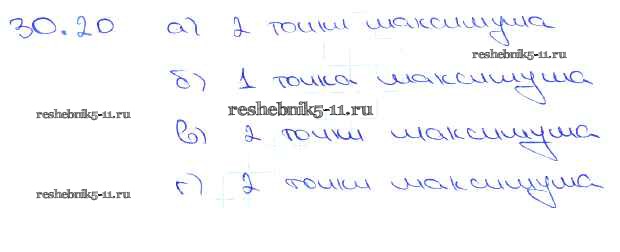 30.20 а) 2 точки максимума
reshebnik5-11.ru
б) 1 точка максимума
reshebnik5-11.ru
reshebnik5-11.ru
в) 2 точки максимума
г) 2 точки максимума
reshebnik5-11.ru